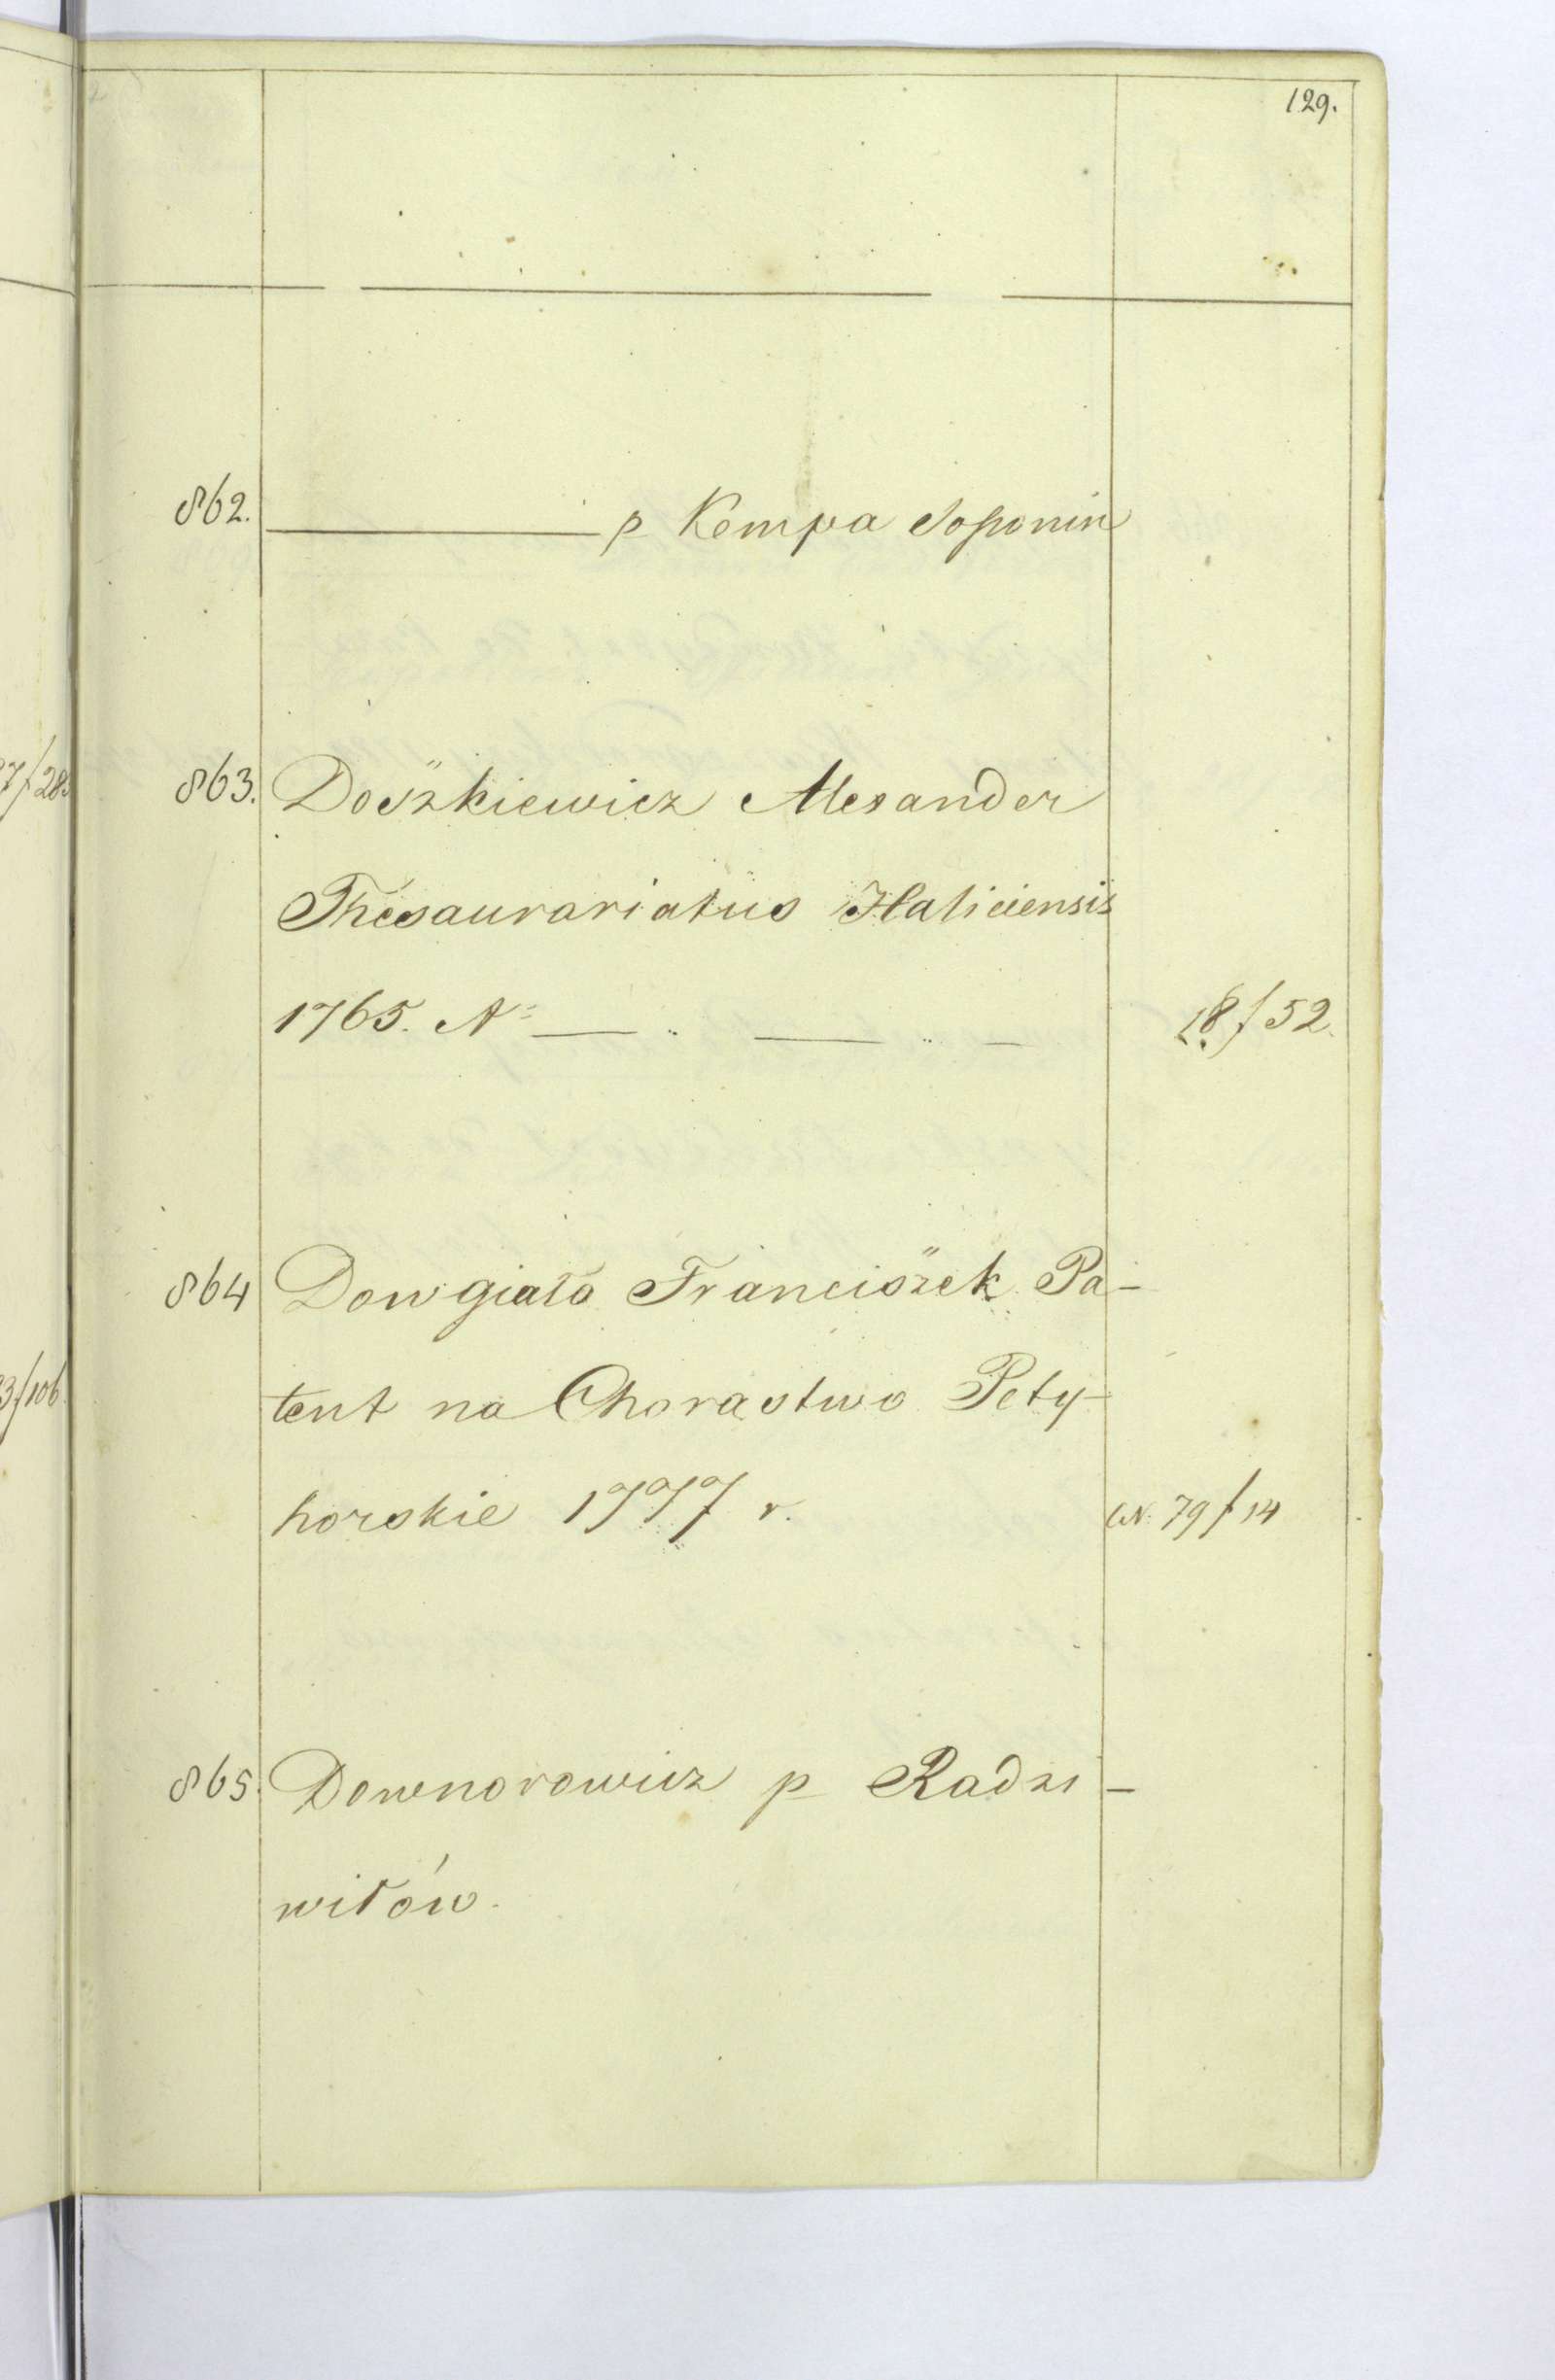 129.
862. ——— p Kempa Soponin
863. Doszkiewicz Alexander
Thesaurariatus Haliciensis
1765. N: — .. — .. — 18/52.
864 Dowgiało Franciszek Pa-
tent na Chorąstwo Pety-
horskie 1777 r. W. 79/14
865. Downorowicz p Radzi-
wiłów.
3/106